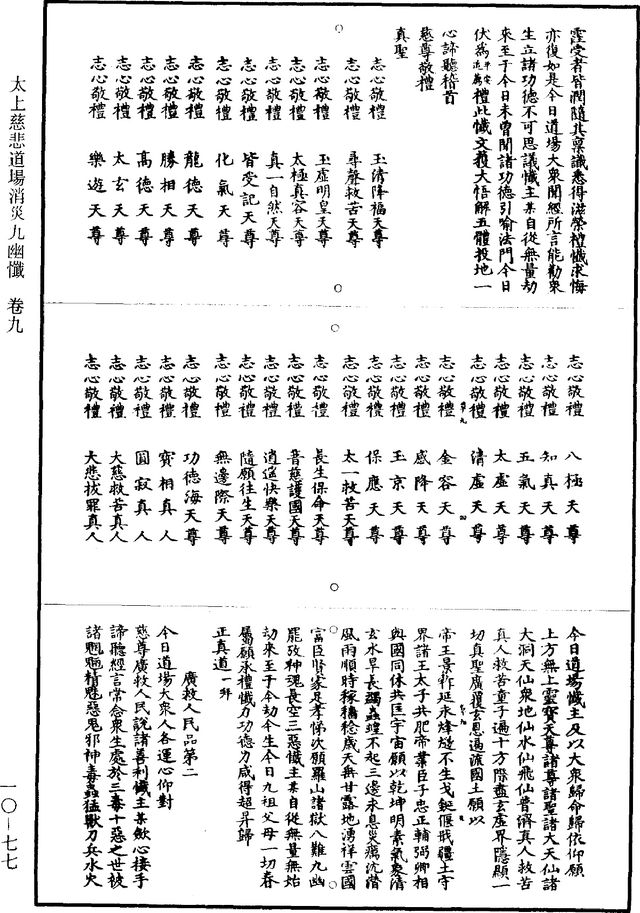 太上慈悲道場消災九幽懺 卷九
一〇—七七
霑受者皆潤隨其稟識悉得滋榮禮懺求悔
亦復如是今日道場大衆聞經所言能勸衆
生立諸功德不可思議懺主某自從無量劫
來至于今日未曾聞諸功德引喻法門今日
伏為禮此懺文獲大悟解五體投地一
心諦聽稽首
慈尊敬禮
真聖
志心敬禮 玉清降福天尊
志心敬禮 尋聲救苦天尊
志心敬禮 玉虛明皇天尊
志心敬禮 太極真容天尊
志心敬禮 真一自然天尊
志心敬禮 皆受記天尊
志心敬禮 化氣天尊
志心敬禮 龍德天尊
志心敬禮 勝相天尊
志心敬禮 高德天尊
志心敬禮 太玄天尊
志心敬禮 樂遊天尊
志心敬禮 八極天尊
志心敬禮 知真天尊
志心敬禮 五氣天尊
志心敬禮 太虛天尊
志心敬禮 清虛天尊
志心敬禮 金容天尊
志心敬禮 感降天尊
志心敬禮 玉京天尊
志心敬禮 保應天尊
志心敬禮 太一救苦天尊
志心敬禮 長生保命天尊
志心敬禮 音慈護國天尊
志心敬禮 逍遙快樂天尊
志心敬禮 隨願往生天尊
志心敬禮 無邊際天尊
志心敬禮 功德海天尊
志心敬禮 寶相真人
志心敬禮 圓寂真人
志心敬禮 大慈救苦真人
志心敬禮 大悲拔罪真人
今日道場懺主及以大衆歸命歸依仰願
上方無上靈寶天尊諸尊諸聖諸大天仙諸
大洞天仙衆地仙水仙飛仙普濟真人救苦
真人救苦童子遍十方際盡玄虛界隱顯一
切真聖廣覆玄恩遍流國土願以
帝王景祚延永烽燧不生戈鋋偃戢疆土守
界諸王太子共肥帝業臣子忠正輔弼卿相
與國同休共匡宇宙願以乾坤明素氣象清
玄水旱長蠲蟲蝗不起三邊永息災癘沉潛
風雨順時稼穡稔歲天無甘露地湧祥雲國
富臣賢家足孝悌次願羅山諸獄八難九幽
罷攷神魂長空三惡懺主某自從無量無始
劫來至于今劫今生今日九祖父母一切眷
屬願承禮懺力功德力咸得超昇歸
正真道一拜
廣救人民品第二
今日道場大衆人各運心仰對
慈尊廣救人民說諸善利懺主某歛心接手
諦聽經言常念衆生處於三毒十惡之世被
諸魍魎精魅惡鬼邪神毒蟲猛獸刀兵水火